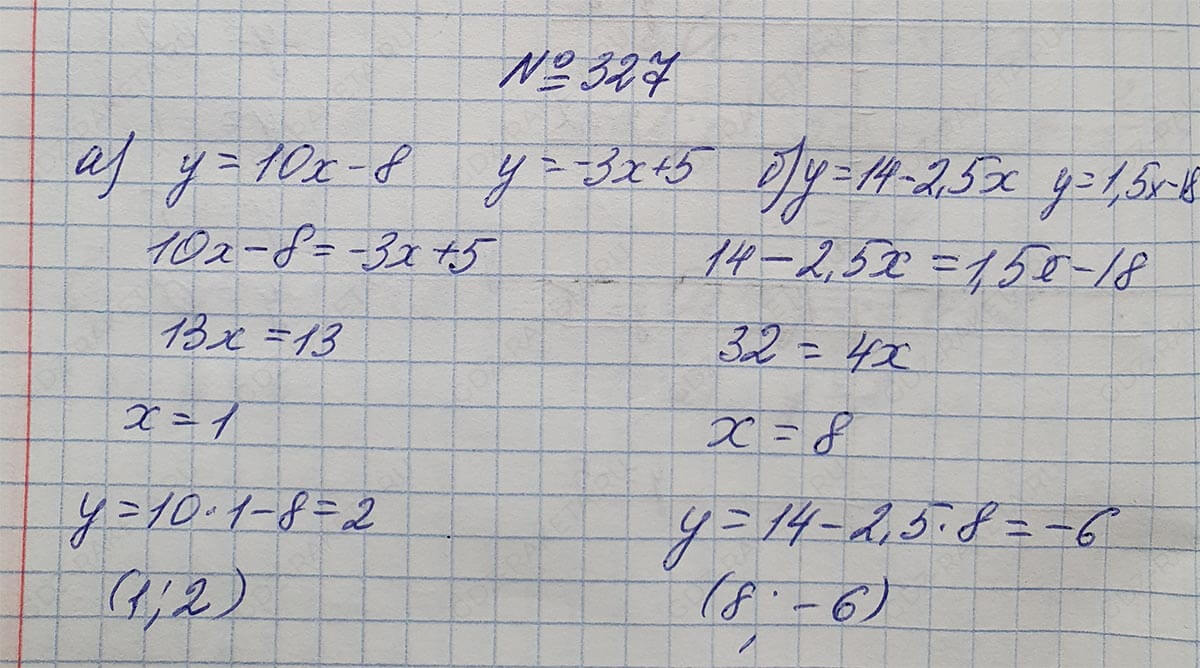 №327
а) y=10x-8 y=-3x+5 б) y=14-2,5x y=1,5x-18
10x-8=-3x+5 14-2,5x=1,5x-18
13x=13 32=4x
x=1 x=8
y=10·1-8=2 y=14-2,5·8=-6
(1;2) (8;-6)